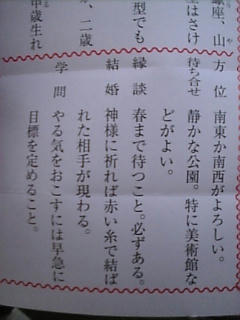 座、山
はさけ
型でも
、二歳
年生れ
方位 南東か南西がよろしい。
待ち合せ 静かな公園。特に美術館な
どがよい。
縁談 春まで待つこと。必ずある。
結婚 神様に祈れば赤い糸で結ば
れた相手が現わる。
学問 やる気をおこすには早急に
目標を定めること。